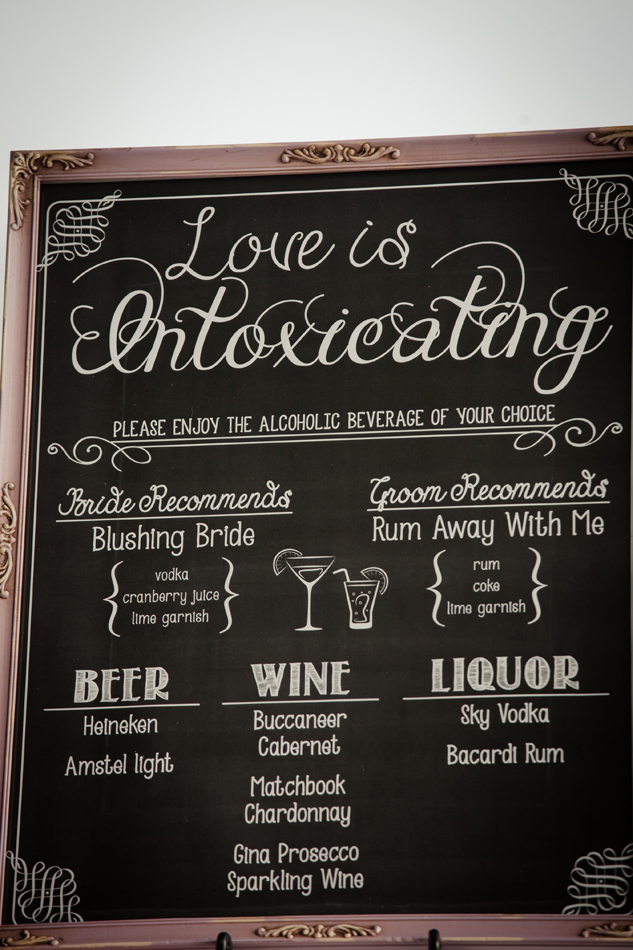 Love is
Intoxicating
PLEASE ENJOY THE ALCOHOLIC BEVERAGE OF YOUR CHOICE
Bride Recommends
Blushing Bride
vodka
cranberry juice
lime garnish
Groom Recommends
Rum Away With Me
rum
coke
lime garnish
BEER
Heineken
Amstel light
WINE
Buccaneer
Cabernet
Matchbook
Chardonnay
Gina Prosecco
Sparkling Wine
LIQUOR
Sky Vodka
Bacardi Rum